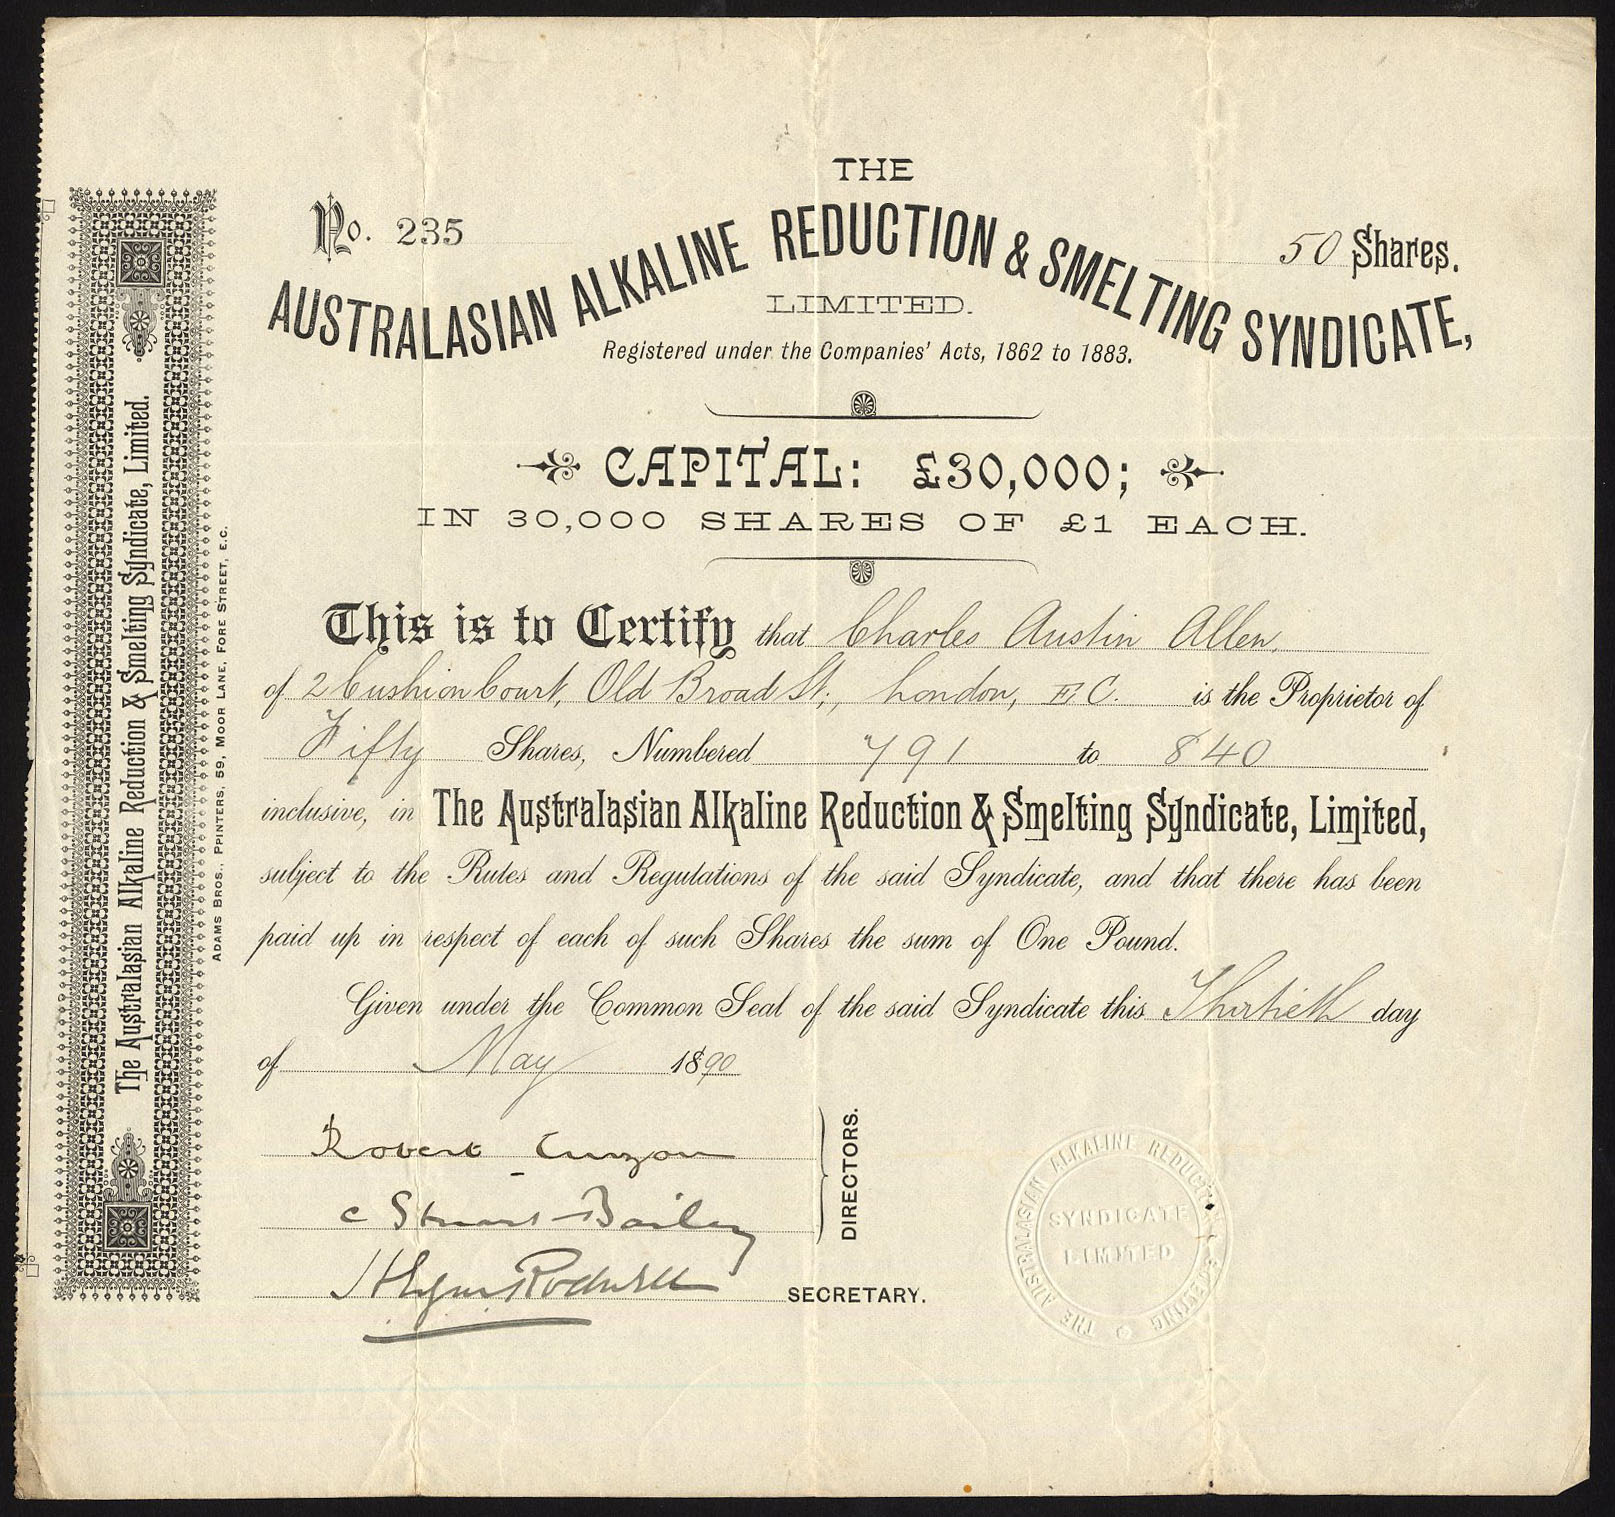 THE
No. 235
50 Shares.
AUSTRALASIAN ALKALINE REDUCTION & SMELTING SYNDICATE,
LIMITED.
Registered under the Companies' Acts, 1862 to 1883.
CAPITAL: £30,000;
IN 30,000 SHARES OF £1 EACH.
This is to Certify that Charles Austin Allen,
of 2 Cushion Court, Old Broad St., London, E.C. is the Proprietor of
Fifty Shares, Numbered 791 to 840
inclusive, in The Australasian Alkaline Reduction & Smelting Syndicate, Limited,
subject to the Rules and Regulations of the said Syndicate, and that there has been
paid up in respect of each of such Shares the sum of One Pound.
Given under the Common Seal of the said Syndicate this Thirtieth day
of May 1890
Robert Curzon
C Stuart Bailey
DIRECTORS.
Rodwell
SECRETARY.
THE AUSTRALASIAN ALKALINE REDUCTION & SMELTING
SYNDICATE
LIMITED
The Australasian Alkaline Reduction & Smelting Syndicate, Limited.
ADAMS BROS., PRINTERS, 59, MOOR LANE, FORE STREET, E.C.